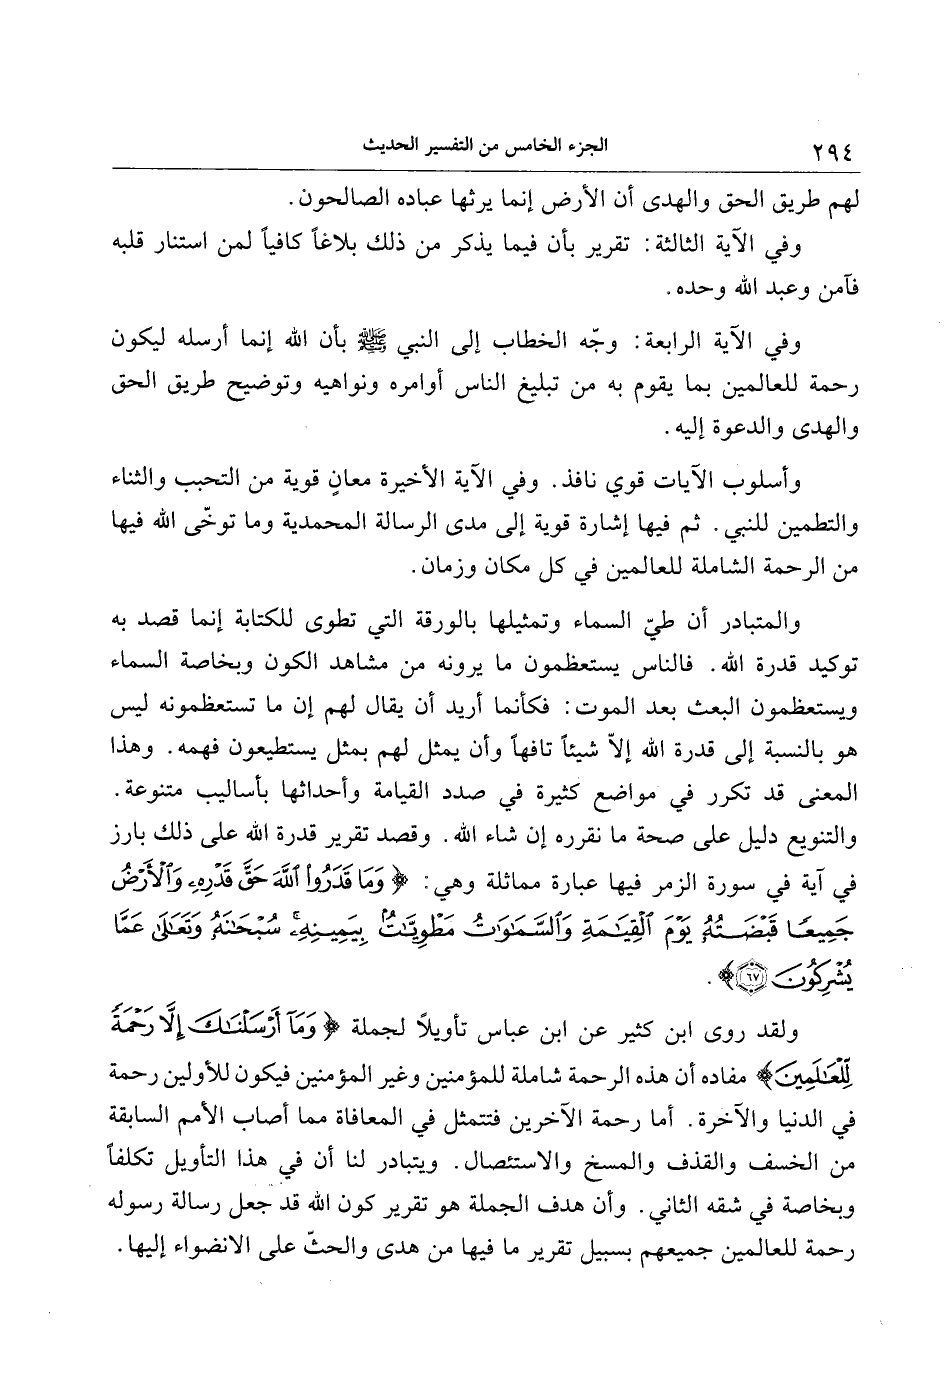 ٢٩٤ الجزء الخامس من التفسير الحديث
لهم طريق الحق والهدى أن الأرض إنما يرثها عباده الصالحون.
وفي الآية الثالثة: تقرير بأن فيما يذكر من ذلك بلاغاً كافياً لمن استنار قلبه
فآمن وعبد الله وحده.
وفي الآية الرابعة: وجّه الخطاب إلى النبي ﷺ بأن الله إنما أرسله ليكون
رحمة للعالمين بما يقوم به من تبليغ الناس أوامره ونواهيه وتوضيح طريق الحق
والهدى والدعوة إليه.
وأسلوب الآيات قوي نافذ. وفي الآية الأخيرة معانٍ قوية من التحبب والثناء
والتطمين للنبي. ثم فيها إشارة قوية إلى مدى الرسالة المحمدية وما توخّى الله فيها
من الرحمة الشاملة للعالمين في كل مكان وزمان.
والمتبادر أن طيّ السماء وتمثيلها بالورقة التي تطوى للكتابة إنما قصد به
توكيد قدرة الله. فالناس يستعظمون ما يرونه من مشاهد الكون وبخاصة السماء
ويستعظمون البعث بعد الموت: فكأنما أريد أن يقال لهم إن ما تستعظمونه ليس
هو بالنسبة إلى قدرة الله إلاّ شيئاً تافهاً وأن يمثل لهم بمثل يستطيعون فهمه. وهذا
المعنى قد تكرر في مواضع كثيرة في صدد القيامة وأحداثها بأساليب متنوعة.
والتنويع دليل على صحة ما نقرره إن شاء الله. وقصد تقرير قدرة الله على ذلك بارز
في آية في سورة الزمر فيها عبارة مماثلة وهي: ﴿وَمَا قَدَرُوا۟ ٱللَّهَ حَقَّ قَدْرِهِۦ وَٱلْأَرْضُ
جَمِيعًا قَبْضَتُهُۥ يَوْمَ ٱلْقِيَـٰمَةِ وَٱلسَّمَـٰوَٰتُ مَطْوِيَّـٰتٌۢ بِيَمِينِهِۦۚ سُبْحَـٰنَهُۥ وَتَعَـٰلَىٰ عَمَّا
يُشْرِكُونَ ٦٧﴾.
ولقد روى ابن كثير عن ابن عباس تأويلاً لجملة ﴿وَمَآ أَرْسَلْنَـٰكَ إِلَّا رَحْمَةً
لِّلْعَـٰلَمِينَ﴾ مفاده أن هذه الرحمة شاملة للمؤمنين وغير المؤمنين فيكون للأولين رحمة
في الدنيا والآخرة. أما رحمة الآخرين فتتمثل في المعافاة مما أصاب الأمم السابقة
من الخسف والقذف والمسخ والاستئصال. ويتبادر لنا أن في هذا التأويل تكلفاً
وبخاصة في شقه الثاني. وأن هدف الجملة هو تقرير كون الله قد جعل رسالة رسوله
رحمة للعالمين جميعهم بسبيل تقرير ما فيها من هدى والحثّ على الانضواء إليها.